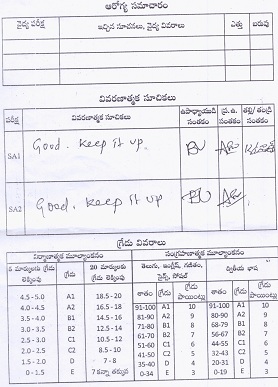 ఆరోగ్య సమాచారం
వైద్య పరీక్ష ఇచ్చిన సూచనలు, వైద్య వివరాలు ఎత్తు బరువు
వివరణాత్మక సూచికలు
పరీక్ష వివరణాత్మక సూచికలు ఉపాధ్యాయుడి సంతకం ప్ర.ఉ. సంతకం తల్లి/తండ్రి సంతకం
SA1 Good. keep it up.
SA2 Good. keep it up
గ్రేడు వివరాలు
నిర్మాణాత్మక మూల్యాంకనం సంగ్రహణాత్మక మూల్యాంకనం
మార్కులకు గ్రేడు లెక్కింపు గ్రేడు 20 మార్కులకు గ్రేడు లెక్కింపు తెలుగు, ఇంగ్లీష్, గణితం, సైన్స్, సోషల్ ద్వితీయ భాష
శాతం గ్రేడు గ్రేడు పాయింట్లు శాతం గ్రేడు గ్రేడు పాయింట్లు
4.5 - 5.0 A1 18.5 - 20 91-100 A1 10 90-100 A1 10
4.0 - 4.5 A2 16.5 - 18 81-90 A2 9 80-90 A2 9
3.5 - 4.0 B1 14.5 - 16 71-80 B1 8 68-79 B1 8
3.0 - 3.5 B2 12.5 - 14 61-70 B2 7 56-67 B2 7
2.5 - 3.0 C1 10.5 - 12 51-60 C1 6 44-55 C1 6
2.0 - 2.5 C2 8.5 - 10 41-50 C2 5 32-43 C2 5
1.5 - 2.0 D 7 - 8 35-40 D 4 20-31 D 4
0 - 1.5 E 7 కన్నా తక్కువ 0-34 E 3 0-19 E 3